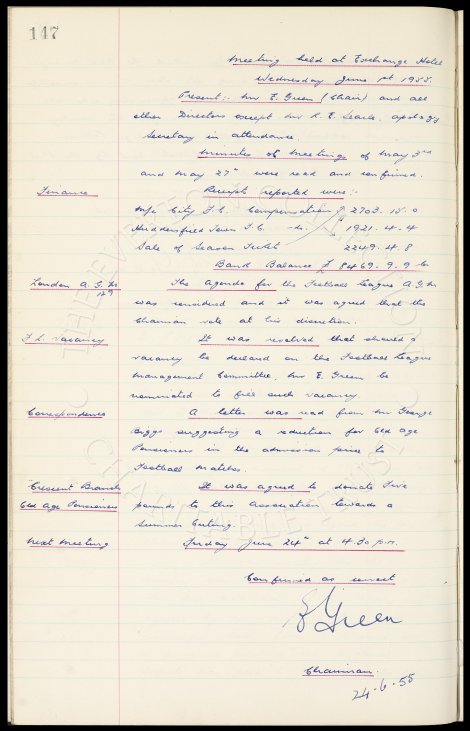 147
Meeting held at Exchange Hotel
Wednesday June 1st 1955.
Present:- Mr E. Green (Chair) and all
other Directors except Mr R. E. Searle. apology
Secretary in attendance.
Minutes of Meetings of May 3rd
and May 27th were read and confirmed.
Finance Receipts reported were:-
M/c City F.C. Compensation £ 2703. 15. 0
Huddersfield Town F.C. do. £ 1921. 4. 4
Sale of Season Tickets 2249. 4. 8
Bank Balance £ 8469. 9. 9
London A.G.M. The Agenda for the Football League A.G.M.
was considered and it was agreed that the
Chairman vote at his discretion.
F.L. Vacancy It was resolved that should a
vacancy be declared on the Football League
Management Committee, Mr E. Green be
nominated to fill such vacancy.
Correspondence A letter was read from Mr George
Biggs suggesting a reduction for Old Age
Pensioners in the admission price to
Football Matches.
Crescent Branch It was agreed to donate Five
Old Age Pensioners pounds to this Association towards a
Summer Outing.
Next Meeting Friday June 24th at 4.30 p.m.
Confirmed as correct
E Green
Chairman.
24-6-55
THE EVERTON COLLECTION
CHARITABLE TRUST